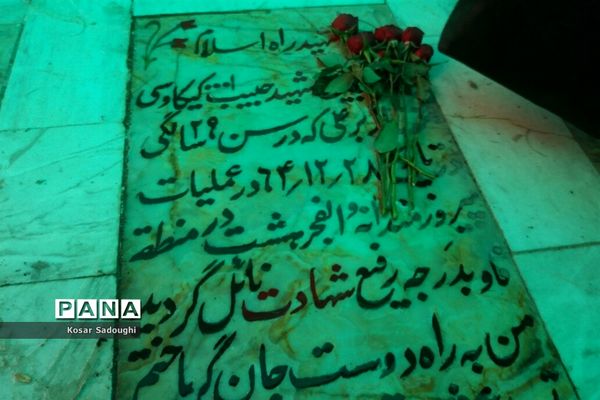 راه اسلام
شهید حبیب الله کیکاوسی
علی که در سن ۲۹ سالگی
۶۴/۱۲/۲۸ در عملیات
پیروزمندانه والفجر هشت در منطقه
فاو بدرجه رفیع شهادت نائل گردید
من به راه دوست جان گر باختم
PANA
Kosar Sadoughi